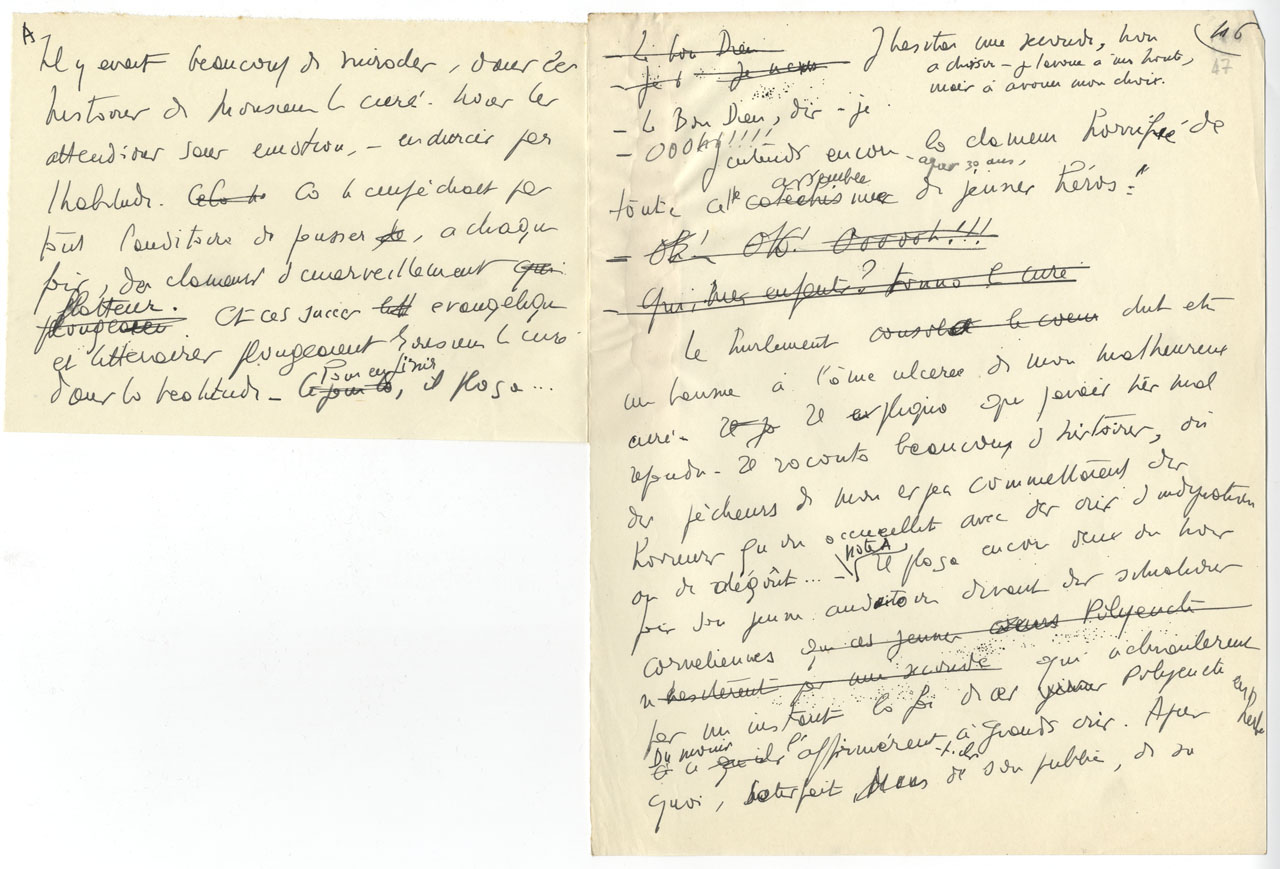 A
Il y avait beaucoup de miracles, dans les
histoires de Monsieur le curé. Nous les
attendions sans émotion, - endurcis par
l'habitude. Cela ne Ca n'empêchait pas
tout l'auditoire de pousser, à chaque
fois, des clameurs d'émerveillement qui
flatteur.
plongeaient. Et ces succès evangéliques
et littéraires plongeaient Monsieur le curé
Pour en finir
dans la béatitude - , il posa...
46
47
- Le bon Dieu
- Je
J'hésitai une seconde, non
à choisir - je l'avoue à ma honte,
mais à avouer mon choix.
- Le Bon Dieu, dis-je.
- OOOh!!!!
J'entends encore - la clameur horrifiée de
après 30 ans,
assemblée
toute cette catéchisme de jeunes héros :"
- Oh! Oh! Oooooh!!!
- Qui, mes enfants? tonna le curé
Le hurlement consola le coeur dut être
un baume à l'âme ulcérée de mon malheureux
curé. Il expliqua que j'avais très mal
répondu. Il raconta beaucoup d'histoires, où
des pécheurs de mon espèce commettaient des
horreurs qu'on accueillit avec des cris d'indignation
ou de dégoût... -
Note A
Il posa encore deux ou trois
fois son jeune auditoire devant des situations
cornéliennes que ces jeunes Polyeucte
n'hésitèrent pas une seconde qui n'ébranlèrent
pas un instant la foi de ces jeunes Polyeucte en herbe
Du moins
l'affirmèrent-ils à grands cris. Après
quoi, satisfait de son public, de sa